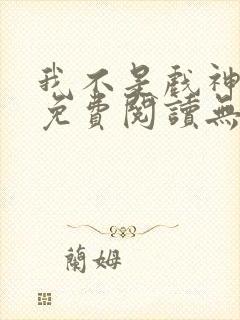 我不是戏神
免費閱讀無
蘭姆